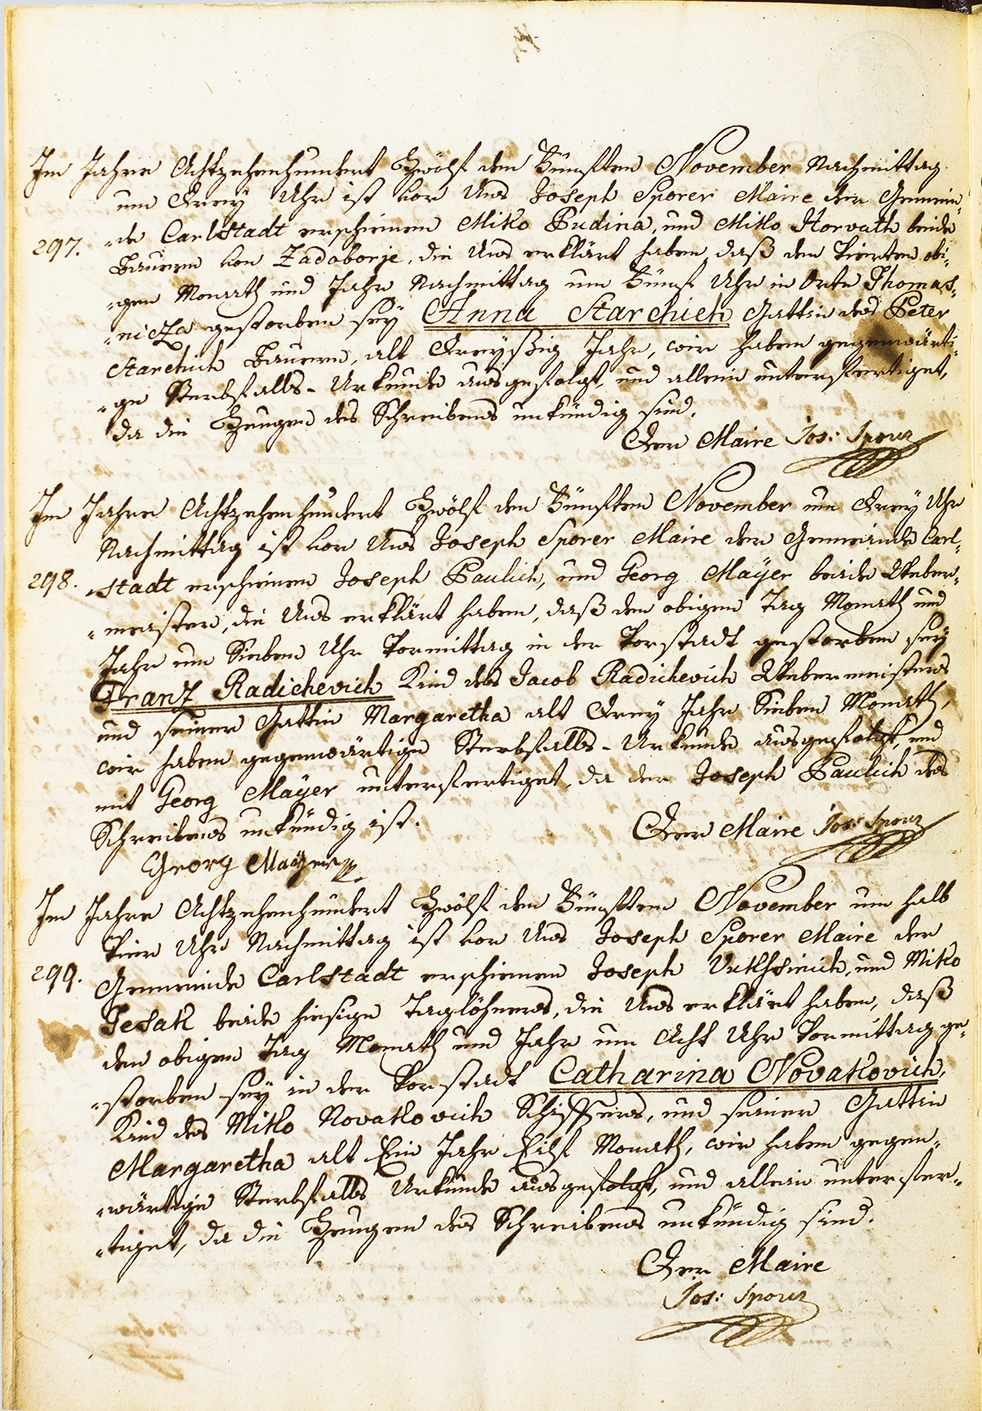 Im Jahre Achtzehenhundert Zwölf den Fünften November Nachmittag
um Drey Uhr ist vor Uns Joseph Sporer Maire der Gemein-
297. -de Carlstadt erschienen Miko Budina, und Miko Horvath beide
Bauern von Zadoborje, die Uns erklärt haben, daß den Vierten obi-
-gen Monath und Jahr Nachmittag um Fünf Uhr in Orte Thomas-
-nicza gestorben sey Anna Starchich Gattin des Peter
Starchich Bauern, alt Dreyßig Jahr, wir haben gegenwärti-
-ge Sterbfalls-Urkunde ausgefolgt, und allein unterfertiget,
da die Zeugen des Schreibens unkündig sind.
Der Maire Jos: Sporer
Im Jahre Achtzehenhundert Zwölf den Fünften November um Drey Uhr
Nachmittag ist vor Uns Joseph Sporer Maire der Gemeinde Carl-
298. -stadt erschienen Joseph Paulich, und Georg Mayer beide Weber-
-meister, die Uns erklärt haben, daß den obigen Tag Monath und
Jahr um Sieben Uhr Vormittag in der Vorstadt gestorben sey
Franz Radichevich Kind des Jacob Radichevich Webermeisters
und seiner Gattin Margaretha alt Drey Jahr Sieben Monath,
wir haben gegenwärtige Sterbfalls-Urkunde ausgefolgt und
mit Georg Mayer unterfertiget, da der Joseph Paulich des
Schreibens unkündig ist.
Der Maire Jos: Sporer
Georg Mayer
Im Jahre Achtzehenhundert Zwölf den Fünften November um halb
Vier Uhr Nachmittag ist vor Uns Joseph Sporer Maire der
299. Gemeinde Carlstadt erschienen Joseph und Miko
Jesak beide hiesige Taglöhners, die Uns erklärt haben, daß
den obigen Tag Monath und Jahr um Acht Uhr Vormittag ge-
-storben sey in der Vorstadt Catharina Novakovich,
Kind des Miko Novakovich Schiffers, und seiner Gattin
Margaretha alt Ein Jahr Eilf Monath, wir haben gegen-
-wärtige Sterbfalls Urkunde ausgefolgt, und allein unterfer-
-tiget, da die Zeugen des Schreibens unkündig sind.
Der Maire
Jos: Sporer